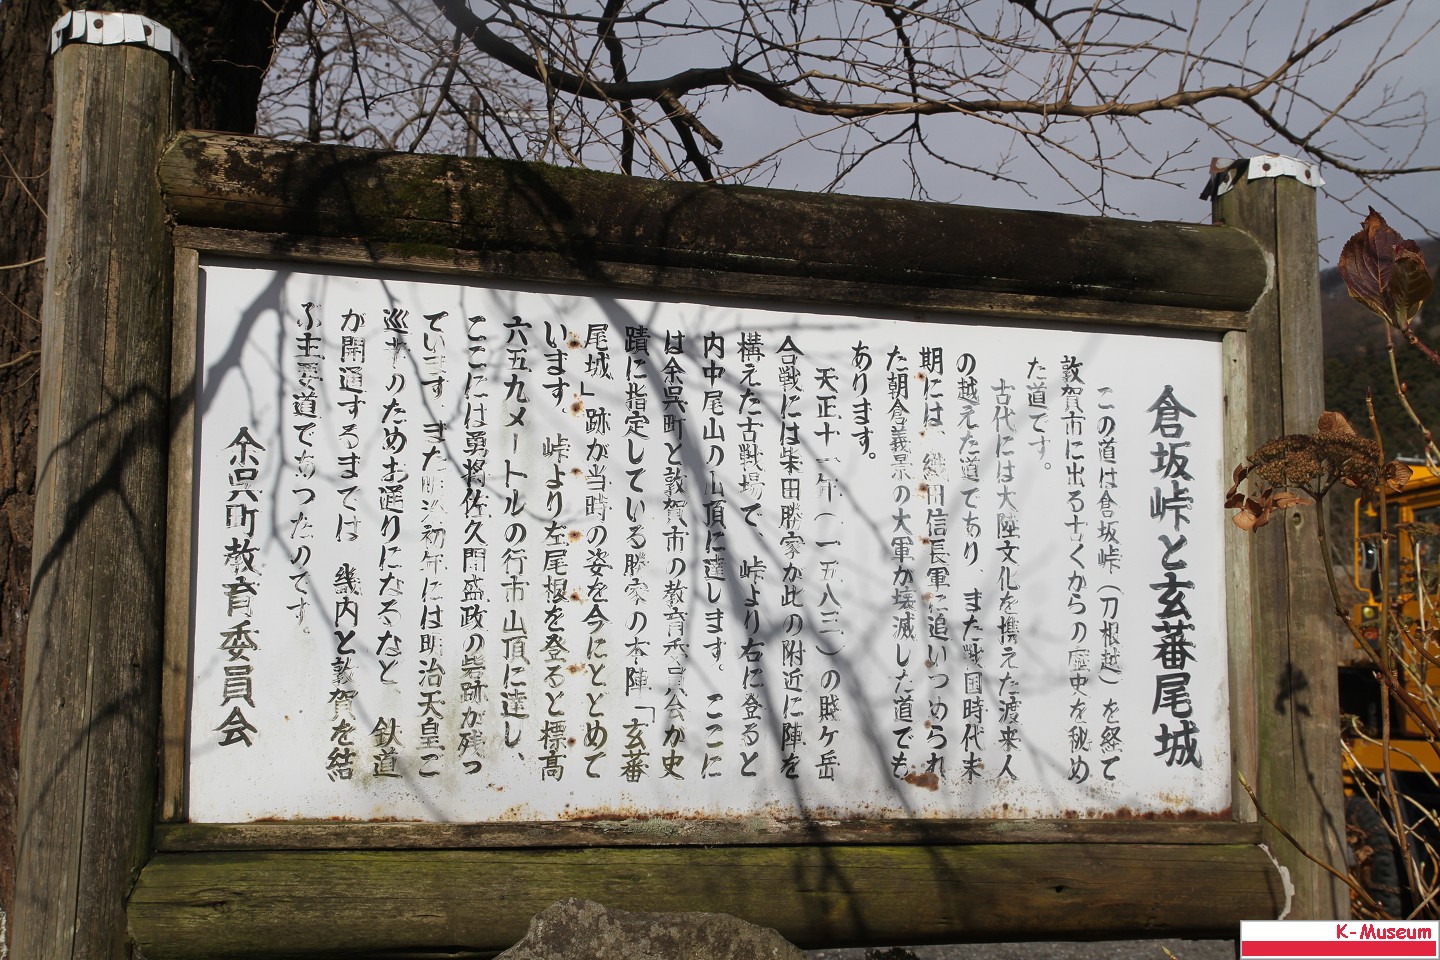 倉坂峠と玄蕃尾城
この道は倉坂峠(刀根越)を経て
敦賀市に出る古くからの歴史を秘め
た道です。
古代には大陸文化を携えた渡来人
の越えた道であり、また戦国時代末
期には、織田信長軍に追いつめられ
た朝倉義景の大軍が壊滅した道でも
あります。
天正十一年(一五八三)の賎ケ岳
合戦には柴田勝家が此の附近に陣を
構えた古戦場で、峠より右に登ると
内中尾山の山頂に達します。ここに
は余呉町と敦賀市の教育委員会が史
蹟に指定している勝家の本陣「玄蕃
尾城」跡が当時の姿を今にとどめて
います。峠より左尾根を登ると標高
六五九メートルの行市山頂に達し、
ここには勇将佐久間盛政の砦跡が残っ
ています。また明治初年には明治天皇ご
巡幸のためお通りになるなど 鉄道
が開通するまでは 畿内と敦賀を結
ぶ主要道であつたのです。
余呉町教育委員会
K-Museum